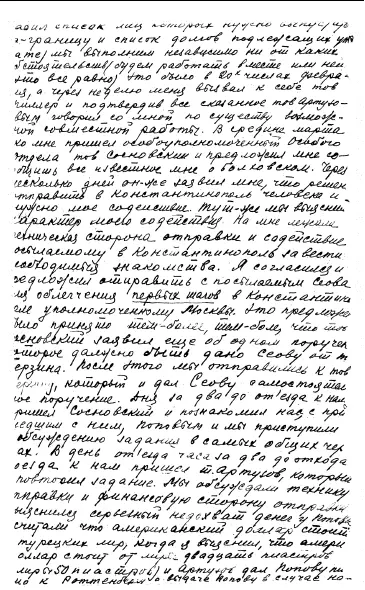 список лиц которых нужно
границу и список долгов подлежащих упл
ате) мы выполним независимо ни от каких
обстоятельств (будем работать вместе или нет
это все равно) это было в 20х числах февра-
ля, а через неделю меня вызвал к себе тов
и подтвердив все сказанное тов Артузо-
вым говорил со мной по существу возмож-
ной совместной работы. В средине марта
ко мне пришел особоуполномоченный Особого
отдела тов Сосновский и предложил мне со-
общить все известное мне о Волковском. Через
несколько дней он же заявил мне, что решен
отправить в Константинополь человека и
нужно мое содействие тут же мы выяснили
характер моего содействия на мне лежала
техническая сторона отправки и содействие
посылаемому в Константинополь завести
необходимые знакомства. Я согласился и
предложил отправить с посылаемым Ссова
для облегчения первых шагов в Константино
поле уполномоченному Москвы. Это предложение
было принято тем-более, что тов
Сосновский заявил еще об одном поручен
которое должно быть дано Ссову от т
После этого мы отправились к тов
который и дал Ссову самостоятель
ное поручение. Дня за два до отезда к нам
пришел Сосновский и познакомил нас с при
шедшим с ним, Поповым и мы приступили
обсуждению задания в самых общих чер
тах. В день отезда часа за два до отхода
поезда к нам пришел т. Артузов, который
повторил задание. Мы обсуждали технику
отправки и финансовую сторону отправки
выяснился серьезный недохват денег у Попова
считали что американский доллар стоит
турецких лир, когда я выяснил, что амери
доллар стоит от лиры двадцать пиастров
лиры 50 пиастров) и Артузов дал Попову пи
о выдаче Попову в случае на-